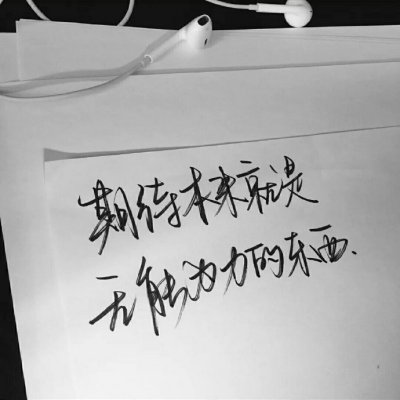 期待本来就是
无能为力的东西.